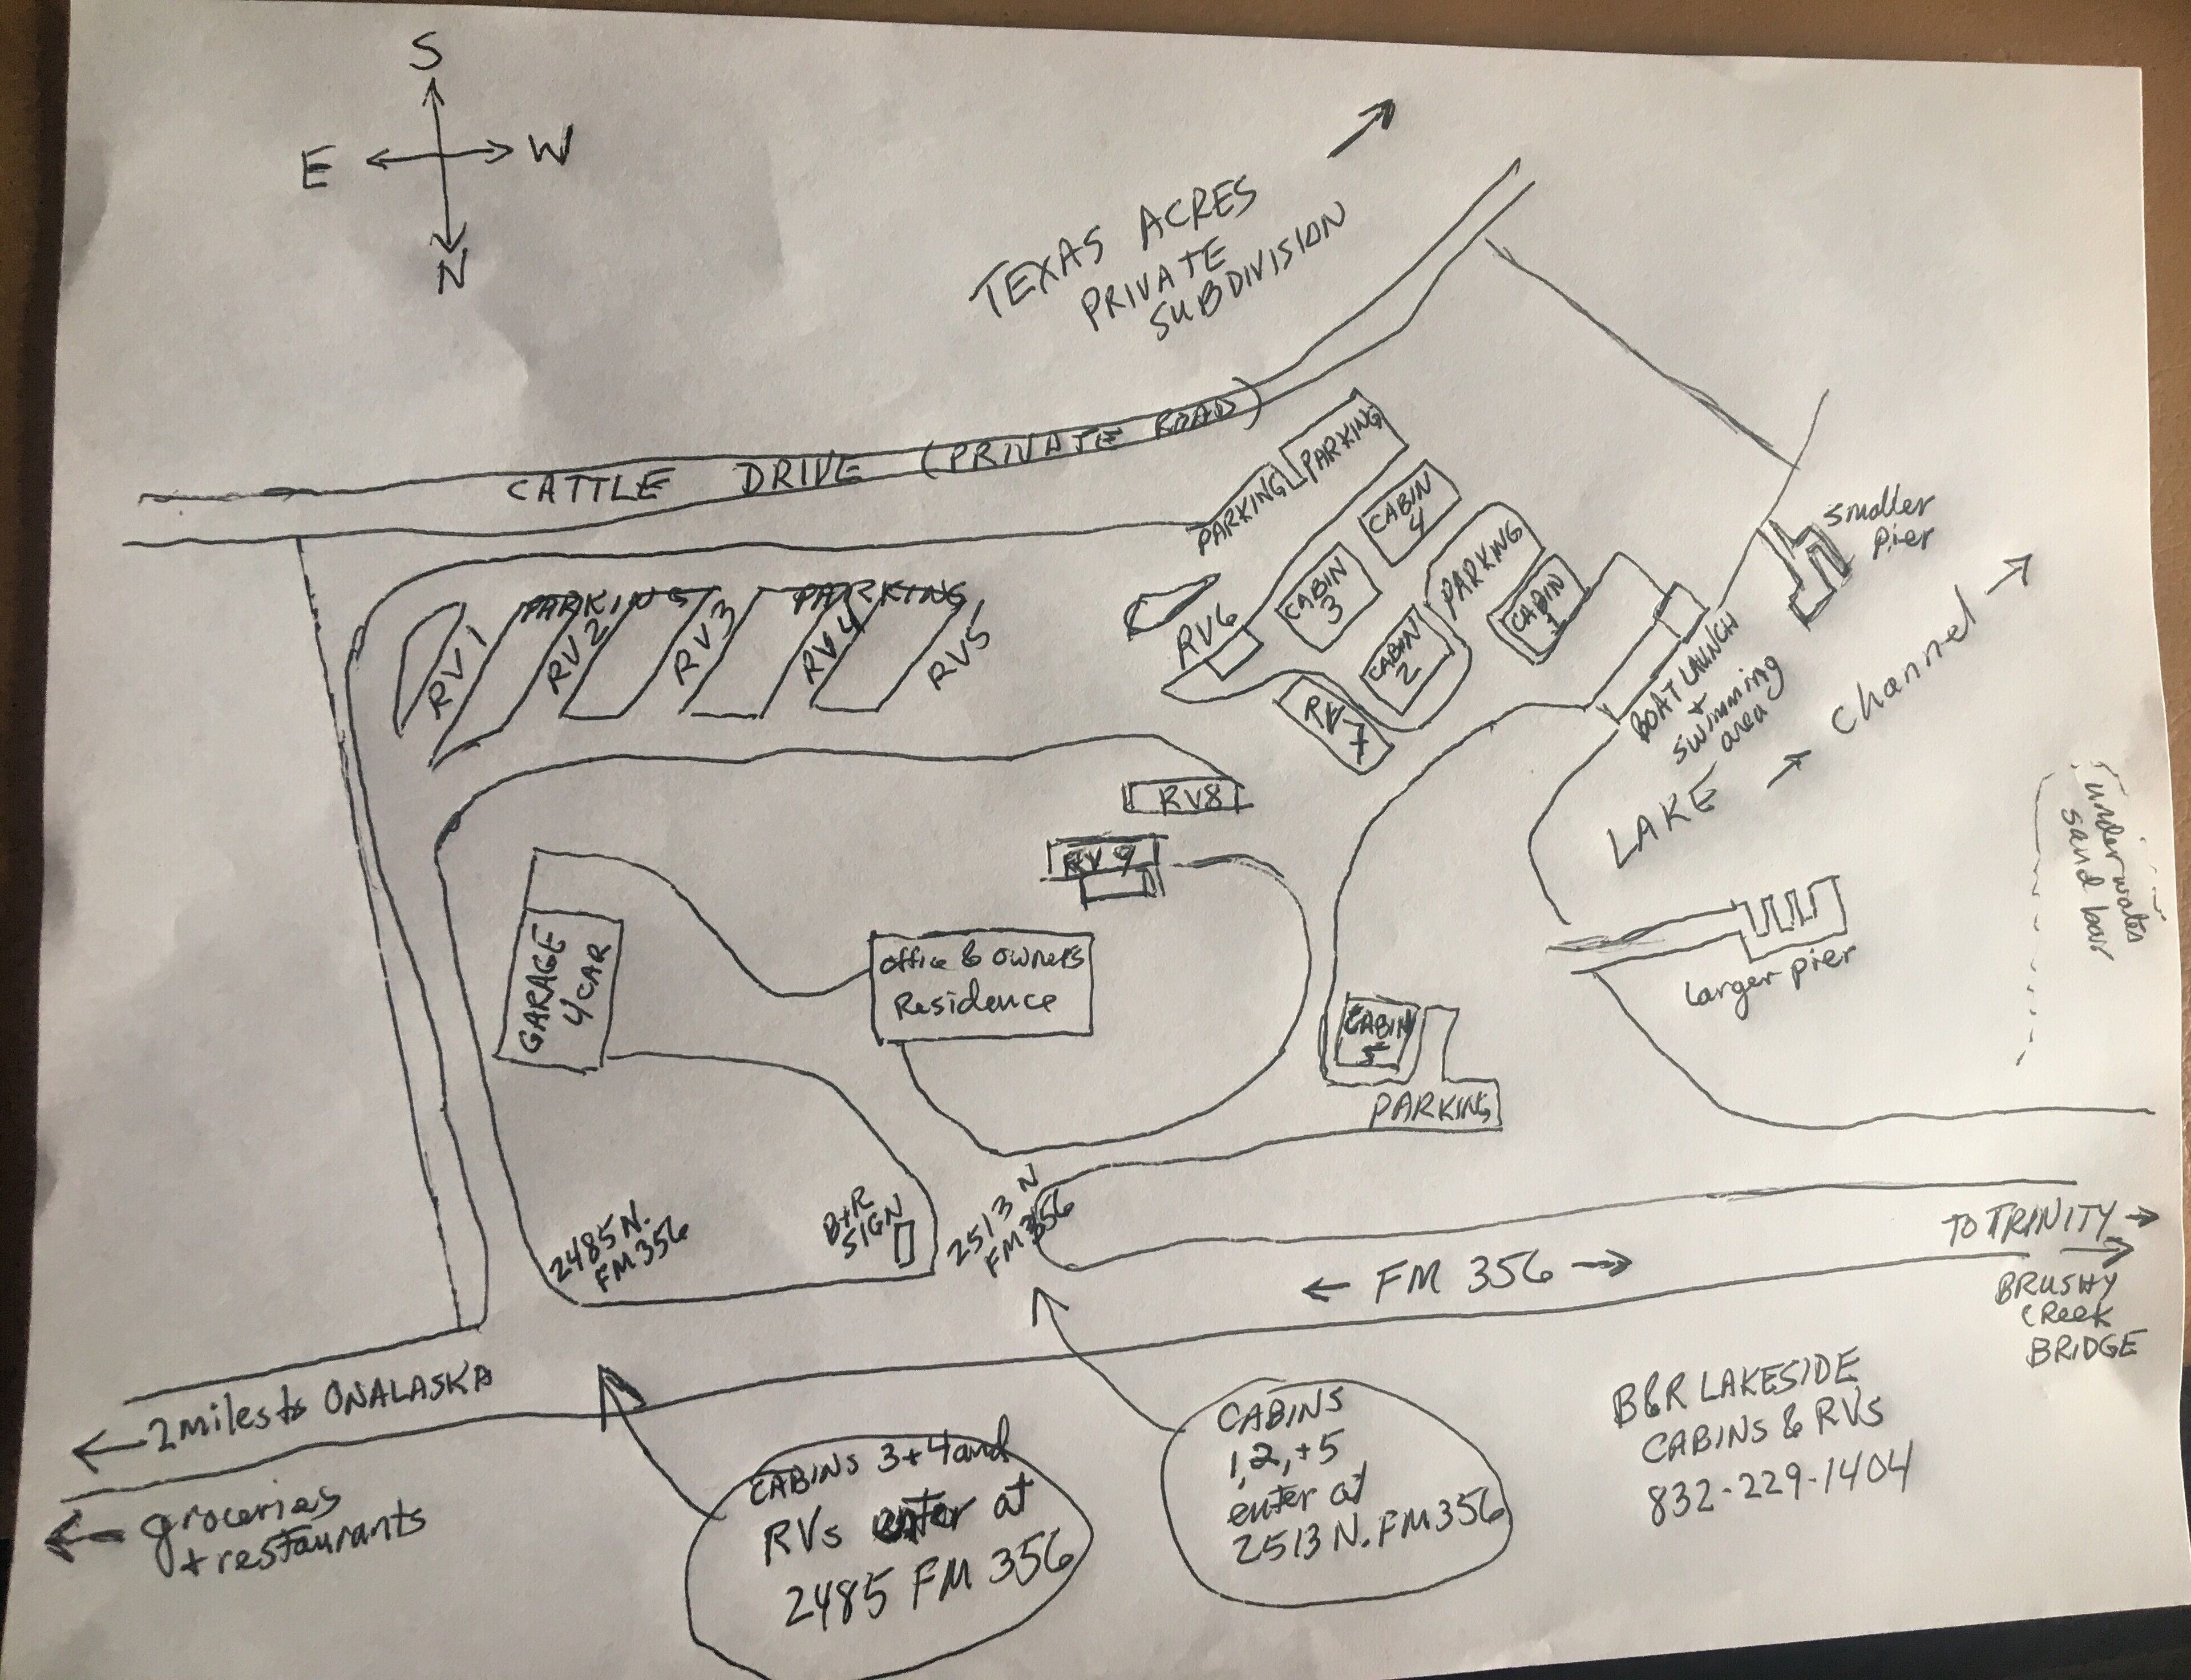 S
E
W
N
TEXAS ACRES
PRIVATE
SUBDIVISION
CATTLE DRIVE (PRIVATE ROAD)
PARKING
PARKING
CABIN
4
CABIN
3
PARKING
CABIN
1
CABIN
2
RV6
smaller
pier
PARKING
PARKING
RV1
RV2
RV3
RV4
RV5
BOAT LAUNCH
+
swimming
area
LAKE → channel
underwater
sand bar
RV8
RV9
GARAGE
4 CAR
office & owners
Residence
larger pier
CABIN
5
PARKING
2485 N.
FM 356
B+R
SIGN
2513 N
FM 356
← FM 356 →
TO TRINITY
BRUSHY
CREEK
BRIDGE
2 miles to ONALASKA
groceries
+ restaurants
CABINS 3+4 and
RVs enter at
2485 FM 356
CABINS
1,2,+5
enter at
2513 N. FM 356
B&R LAKESIDE
CABINS & RVs
832-229-1404